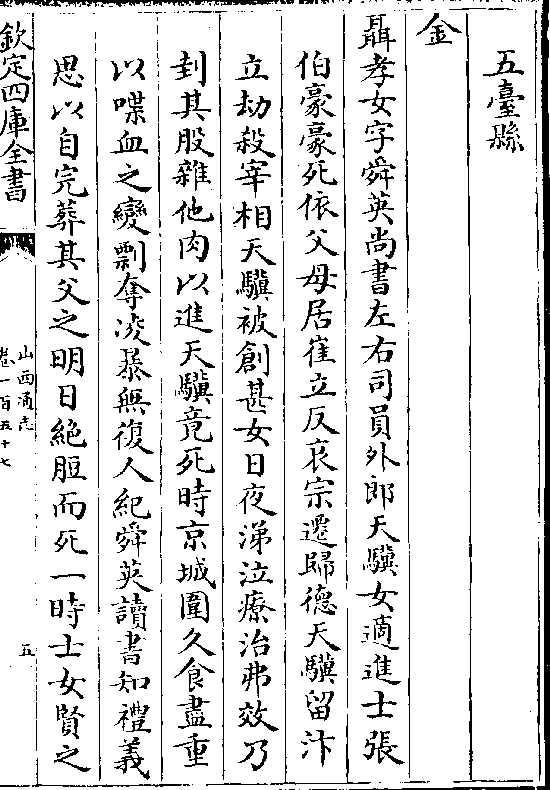 五臺縣
金
聶孝女字舜英尚書左右司員外郎天驥女適進士張
伯豪豪死依父母居崔立反哀宗遷歸德天驥留汴
立劫殺宰相天驥被創甚女日夜涕泣療治弗效乃
刲其股雜他肉以進天驥竟死時京城圍久食盡重
以喋血之變剽奪凌暴無復人紀舜英讀書知禮義
思以自完葬其父之明日絶脰而死一時士女賢之
欽定四庫全書
山西通志
卷一百五十七
五